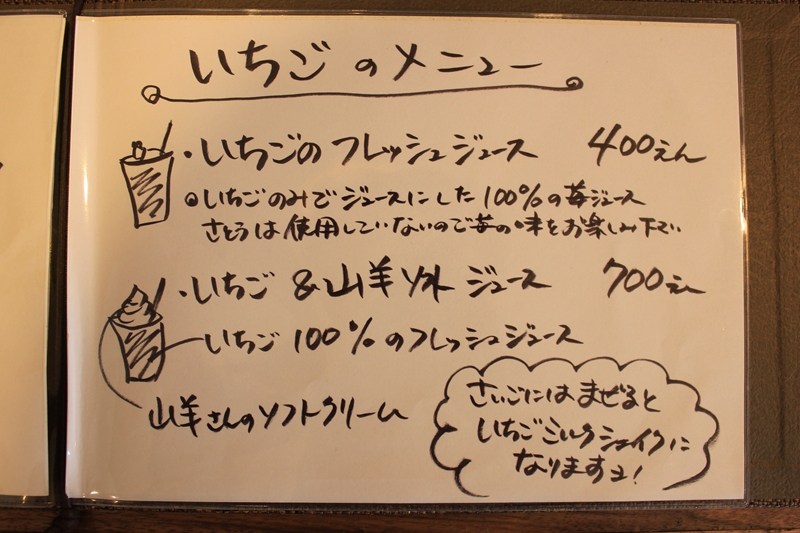 いちごのメニュー
・いちごのフレッシュジュース 400えん
◎いちごのみでジュースにした100%の苺ジュース
さとうは使用していないので苺の味をお楽しみ下さい
・いちご&山羊ソフトジュース 700えん
いちご100%のフレッシュジュース
山羊さんのソフトクリーム
さいごにはまぜると
いちごミルクシェイクに
なりますョ!